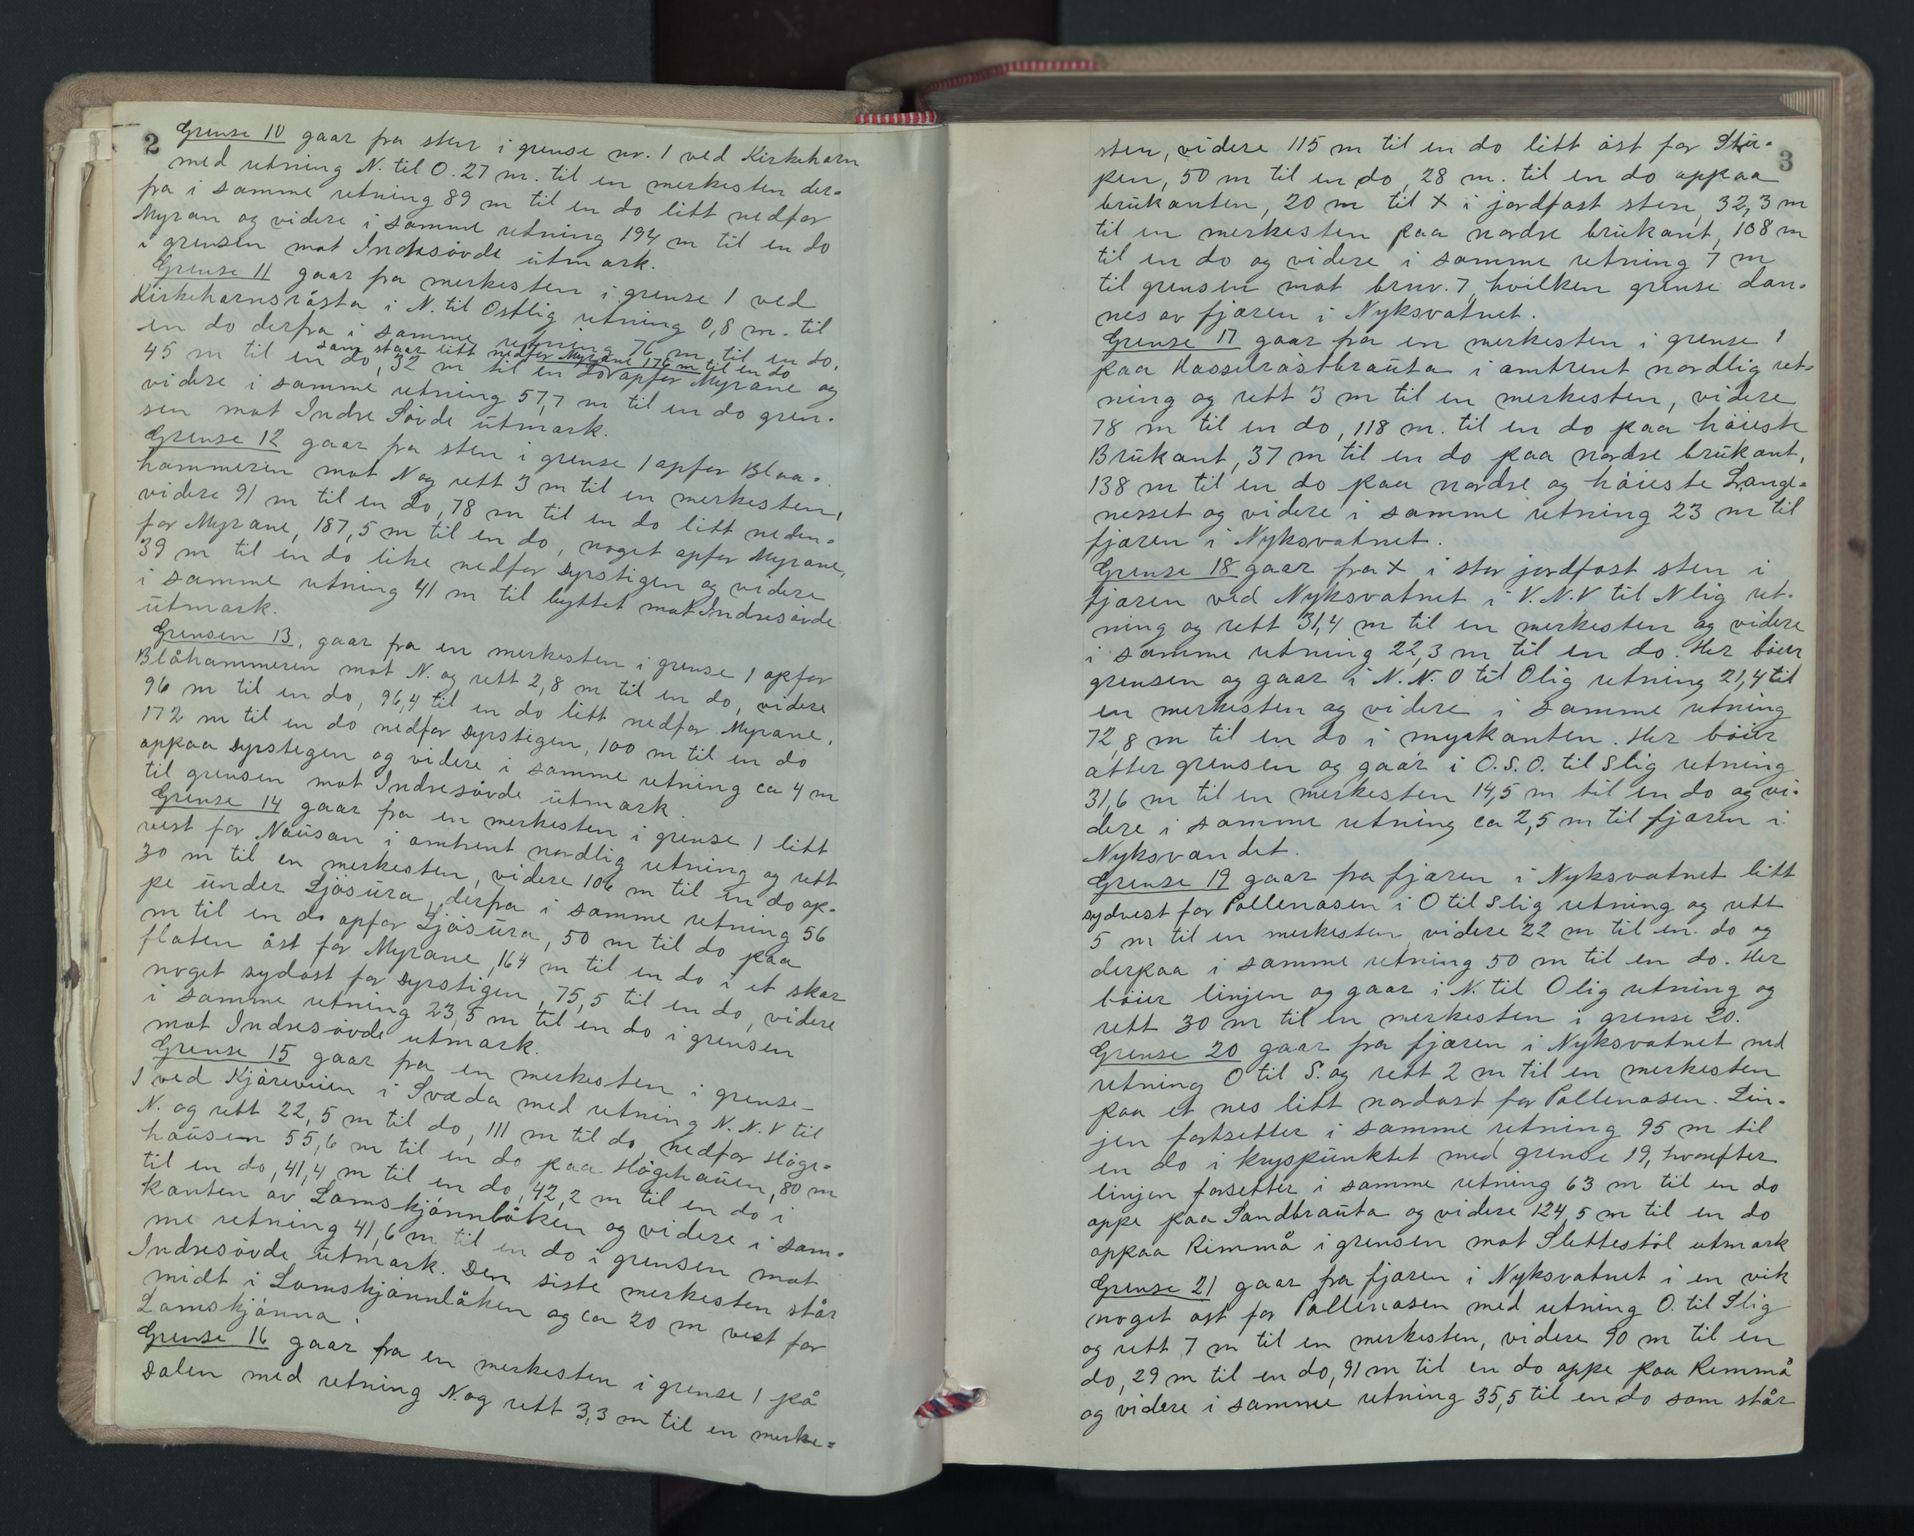 2
Grense 10 gaar fra sten i grense nr. 1 ved Kirkehorn
med retning N. til O. 27 m. til en merkesten der-
fra i samme retning 89 m til en do litt nedfor
Myran og videre i samme retning 194 m til en do
i grensen mot Indresøvde utmark.
Grense 11 gaar fra merkesten i grense 1 ved
Kirkehornsråsta i N. til Ostlig retning 0,8 m. til
en do derfra i samme retning 76 m til en do.
som staar litt nedfor Myrane 176 m til en do
45 m til en do, 32 m til en do opfor Myrane og
videre i samme retning 57,7 m til en do gren-
sen mot Indre Søvde utmark.
Grense 12 gaar fra sten i grense 1 opfor Blaa-
hammeren mot N og rett 3 m til en merkesten,
videre 91 m til en do, 78 m til en do litt neden-
for Myrane, 187,5 m til en do, noget opfor Myrane,
39 m til en do like nedfor Dyrstigen og videre
i samme retning 41 m til byttet mot Indresøvde
utmark.
Grensen 13, gaar fra en merkesten i grense 1 opfor
Blåhammeren mot N. og rett 2,8 m til en do, videre
96 m til en do, 96,4 til en do litt nedfor Myrane,
172 m til en do nedfor Dyrstigen, 100 m til en do
oppaa Dyrstegen og videre i samme retning ca 4 m
til grensen mot Indresøvde utmark.
Grense 14 gaar fra en merkesten i grense 1 litt
vest for Nausan i omtrent nordlig retning og rett
30 m til en merkesten, videre 106 m til en do op-
pe under Ljøsura, derfra i samme retning 56
m til en do opfor Ljøsura, 50 m til do paa
flaten øst for Myrane, 164 m til en do i et skar
noget sydøst for Dyrstigen, 75,5 til en do, videre
i samme retning 23,5 m til en do i grensen
mot Indresøvde utmark.
Grense 15 gaar fra en merkesten i grense
1 ved Kjøreveien i Svæda med retning N. N. V til
N. og rett 22,5 m til do, 111 m til do nedfor Høge-
hausen 55,6 m til en do paa Høgehauen, 80 m
til en do, 41,4 m til en do, 42,2 m til en do i
kanten av Lomskjønnlåken og videre i sam-
me retning 41,6 m til en do i grensen mot
Indresøvde utmark. Den siste merkesten står
midt i Lomskjønnlåken og ca 20 m vest for
Lomskjønna.
Grense 16 gaar fra en merkesten i grense 1 på
Dalen med retning N. og rett 3,3 m til en merke-
3
sten, videre 115 m til en do litt øst for Stu-
pen, 50 m til en do, 28 m. til en do oppaa
brukanten, 20 m til x i jordfast sten, 32,3 m
til en merkesten paa nordre brukant, 108 m
til en do og videre i samme retning 7 m
til grensen mot brnr. 7, hvilken grense dan-
nes av fjæren i Nyksvatnet.
Grense 17 gaar fra en merkesten i grense 1
paa Hasselråstbrauta i omtrent nordlig ret-
ning og rett 3 m til en merkesten, videre
78 m til en do, 118 m. til en do paa høieste
Brukant, 37 m til en do paa nordre brukant,
138 m til en do paa nordre og høieste Lange-
nesset og videre i samme retning 23 m til
fjæren i Nyksvatnet.
Grense 18 gaar fra x i stor jordfast sten i
fjæren ved Nyksvatnet i V. N. V til N lig ret-
ning og rett 31,4 m til en merkesten og videre
i samme retning 22,3 m til en do. Her bøier
grensen og gaar i N. N. O til O lig retning 21,4 til
en merkesten og videre i samme retning
72,8 m til en do i myrkanten. Her bøier
atter grensen og gaar i O. S. O. til S lig retning
31,6 m til en merkesten 14,5 m til en do og vi-
dere i samme retning ca 2,5 m til fjæren i
Nyksvandet.
Grense 19 gaar fra fjæren i Nyksvatnet litt
sydvest for Pollenosen i O til S lig retning og rett
5 m til en merkesten, videre 22 m til en do og
derpaa i samme retning 50 m til en do. Her
bøier linjen og gaar i N. til O lig retning og
rett 30 m til en merkesten i grense 20.
Grense 20 gaar fra fjæren i Nyksvatnet med
retning O til S. og rett 2 m til en merkesten
paa et nes litt nordøst for Pollenosen. Lin-
jen fortsetter i samme retning 95 m til
en do i kryspunktet med grense 19, hvorefter
linjen forsetter i samme retning 63 m til en do
oppe paa Sandbrauta og videre 124,5 m til en do
oppaa Remmå i grensen mot Slettestøl utmark
Grense 21 gaar fra fjæren i Nyksvatnet i en vik
noget øst for Pollenosen med retning O. til S lig
og rett 7 m til en merkesten, videre 90 m til en
do, 29 m til en do, 91 m til en do oppe paa Remmå
og videre i samme retning 35,5 til en do som står